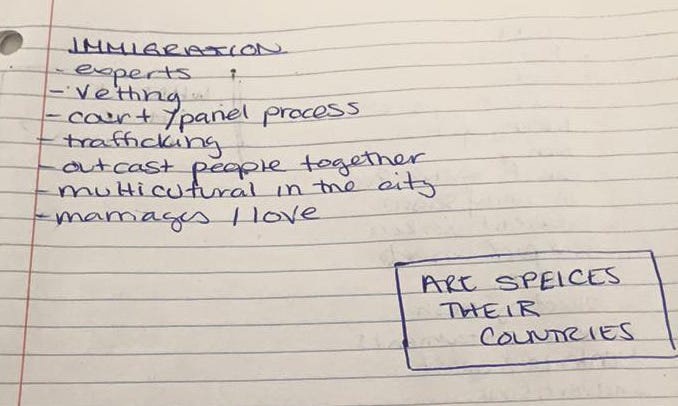 IMMIGRATION
- experts
- vetting
- court /panel process
- trafficking
- outcast people together
- multicultural in the city
- marriages / love
ARE SPEICES
THEIR
COUNTRIES